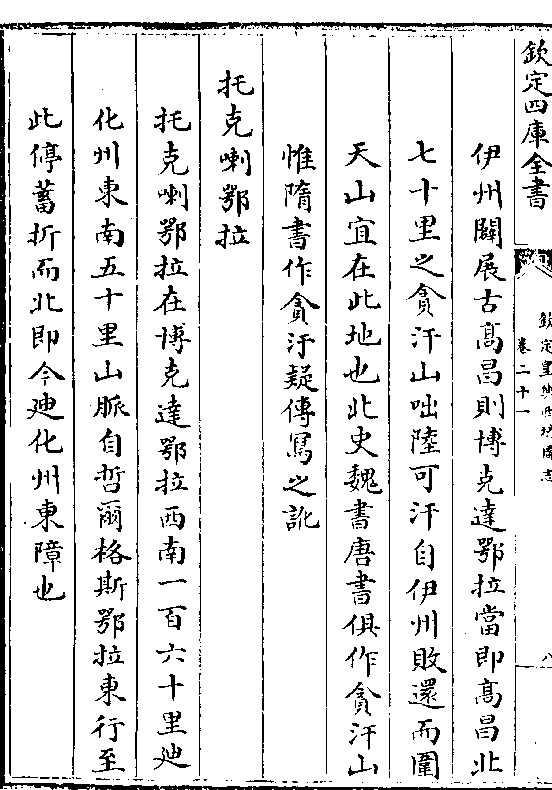 欽定四庫全書
欽定皇輿西域圖志
卷二十一
八
伊州闢展古髙昌則博克達鄂拉當即髙昌北
七十里之貪汗山咄陸可汗自伊州敗還而圍
天山宜在此地也北史魏書唐書俱作貪汗山
惟隋書作貪汙疑傳寫之訛
托克喇鄂拉
托克喇鄂拉在博克達鄂拉西南一百六十里廸
化州東南五十里山脈自哲爾格斯鄂拉東行至
此停蓄折而北即今廸化州東障也